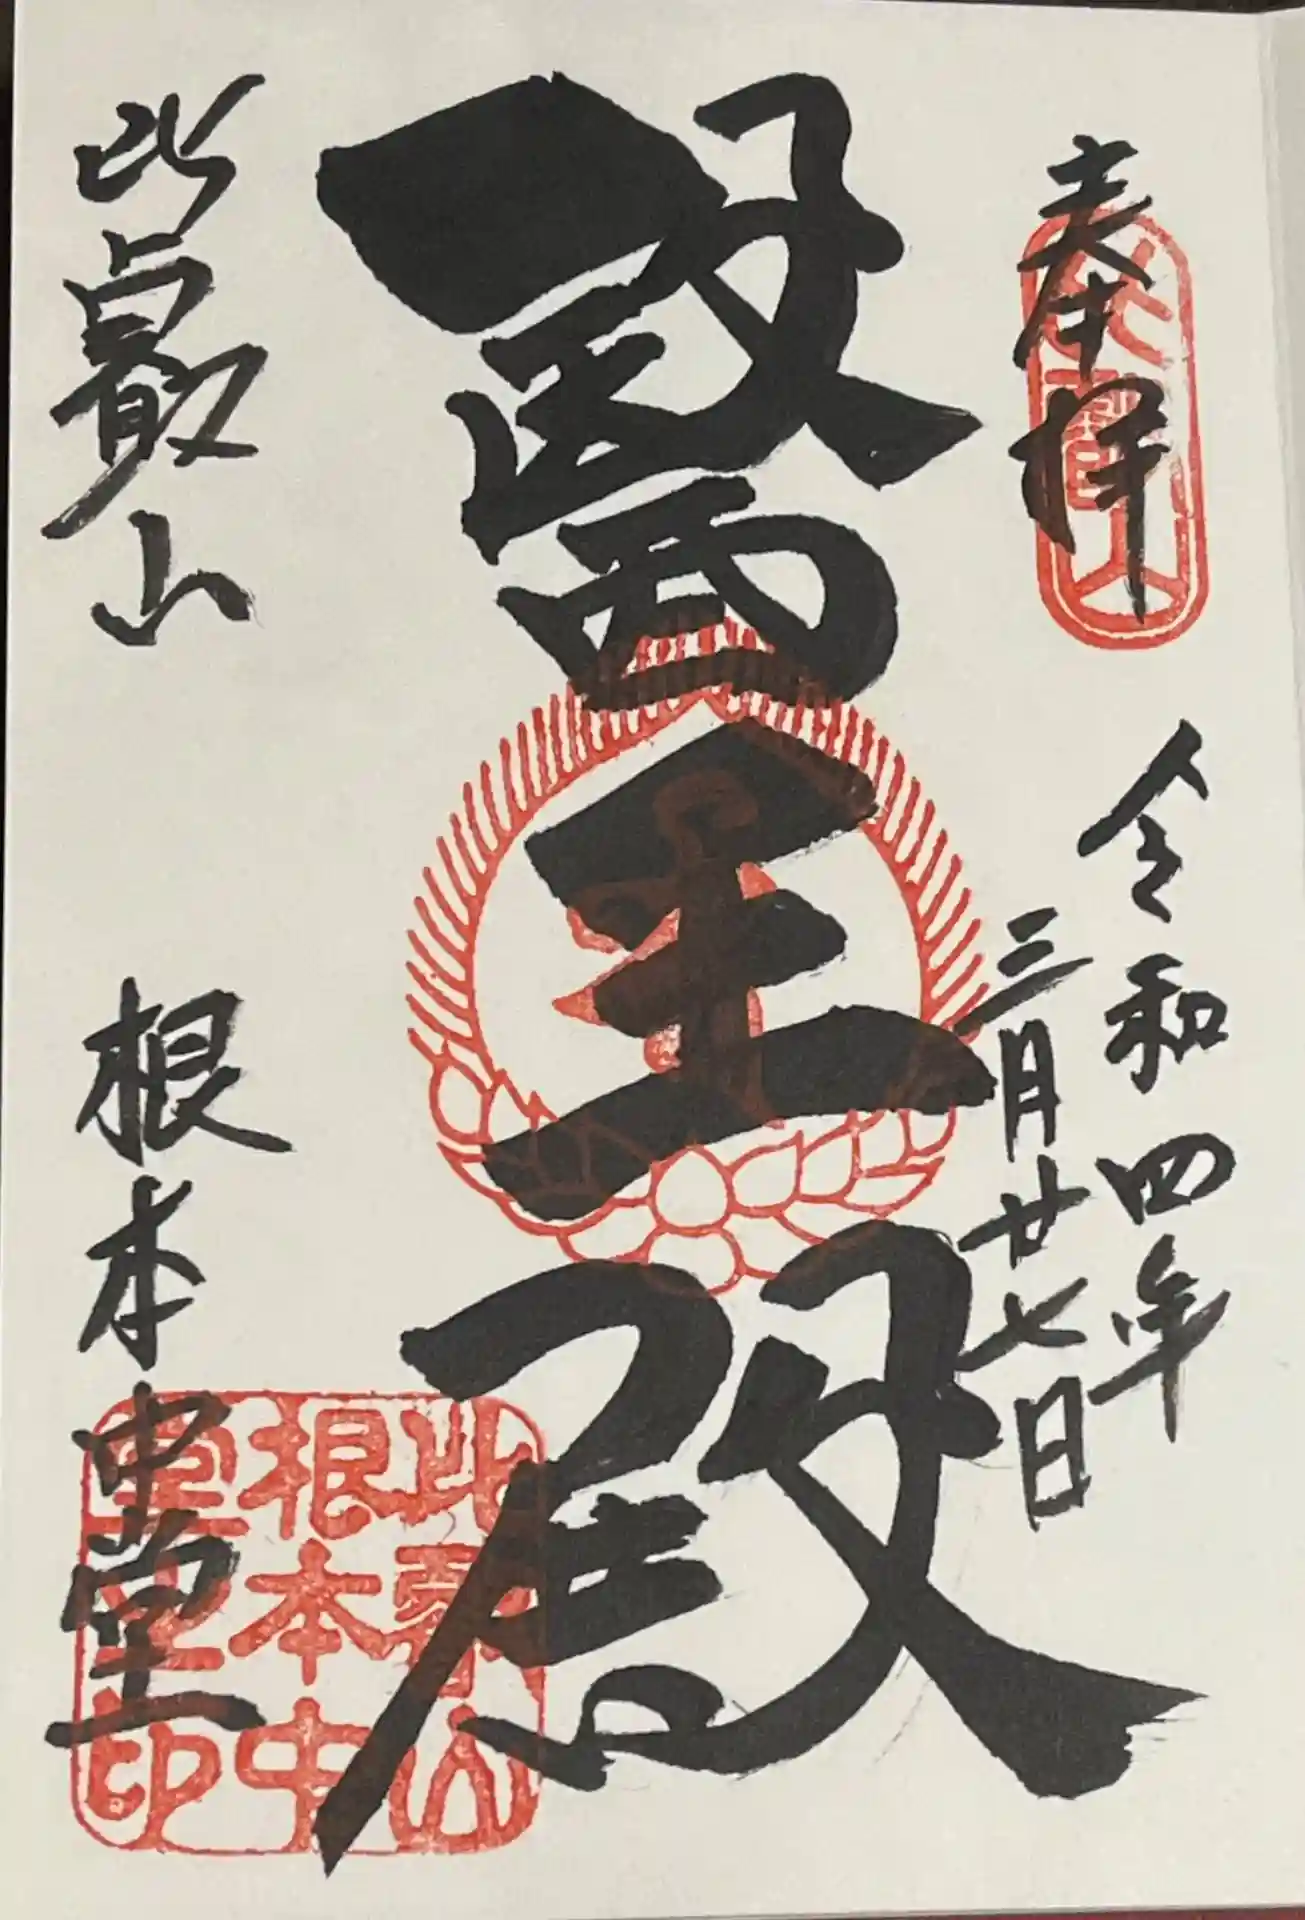 奉拝
令和四年
三月廿七日
醫王殿
比叡山
根本中堂
比叡山
根本中
堂印